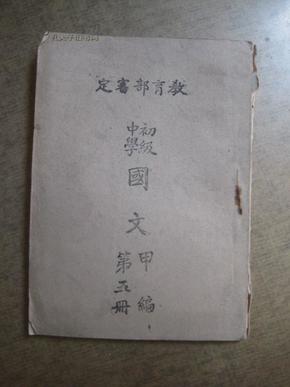 教育部審定
初級
中學
國文
甲編
第五冊